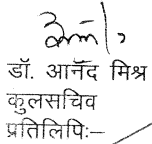 डॉ. आनॅद मिश्र
कुलसचिव
प्रतिलिपिः–